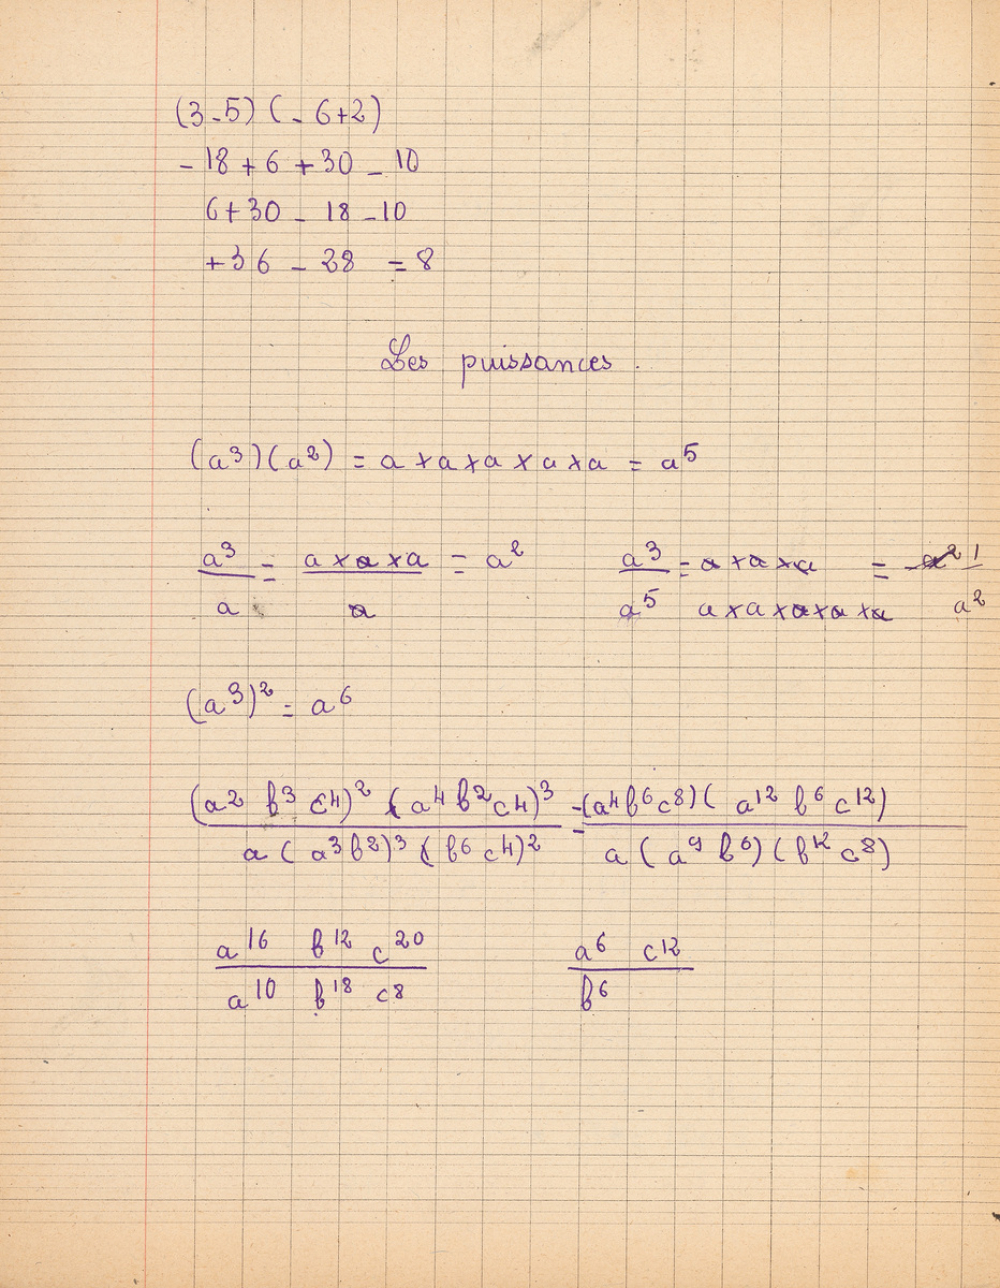 (3-5) (- 6+2)
- 18 + 6 + 30 - 10
6+30 - 18 -10
+36 - 28 = 8
Les puissances.
(a³)(a²) = a × a × a × a × a = a⁵
a³/a = (a × a × a)/a = a² a³/a⁵ = (a × a × a)/(a × a × a × a × a) = 1/a²
(a³)² = a⁶
((a² b³ c⁴)² (a⁴ b² c⁴)³)/(a (a³ b²)³ (b⁶ c⁴)²) = ((a⁴ b⁶ c⁸) (a¹² b⁶ c¹²))/(a (a⁹ b⁶) (b¹² c⁸))
(a¹⁶ b¹² c²⁰)/(a¹⁰ b¹⁸ c⁸) (a⁶ c¹²)/b⁶